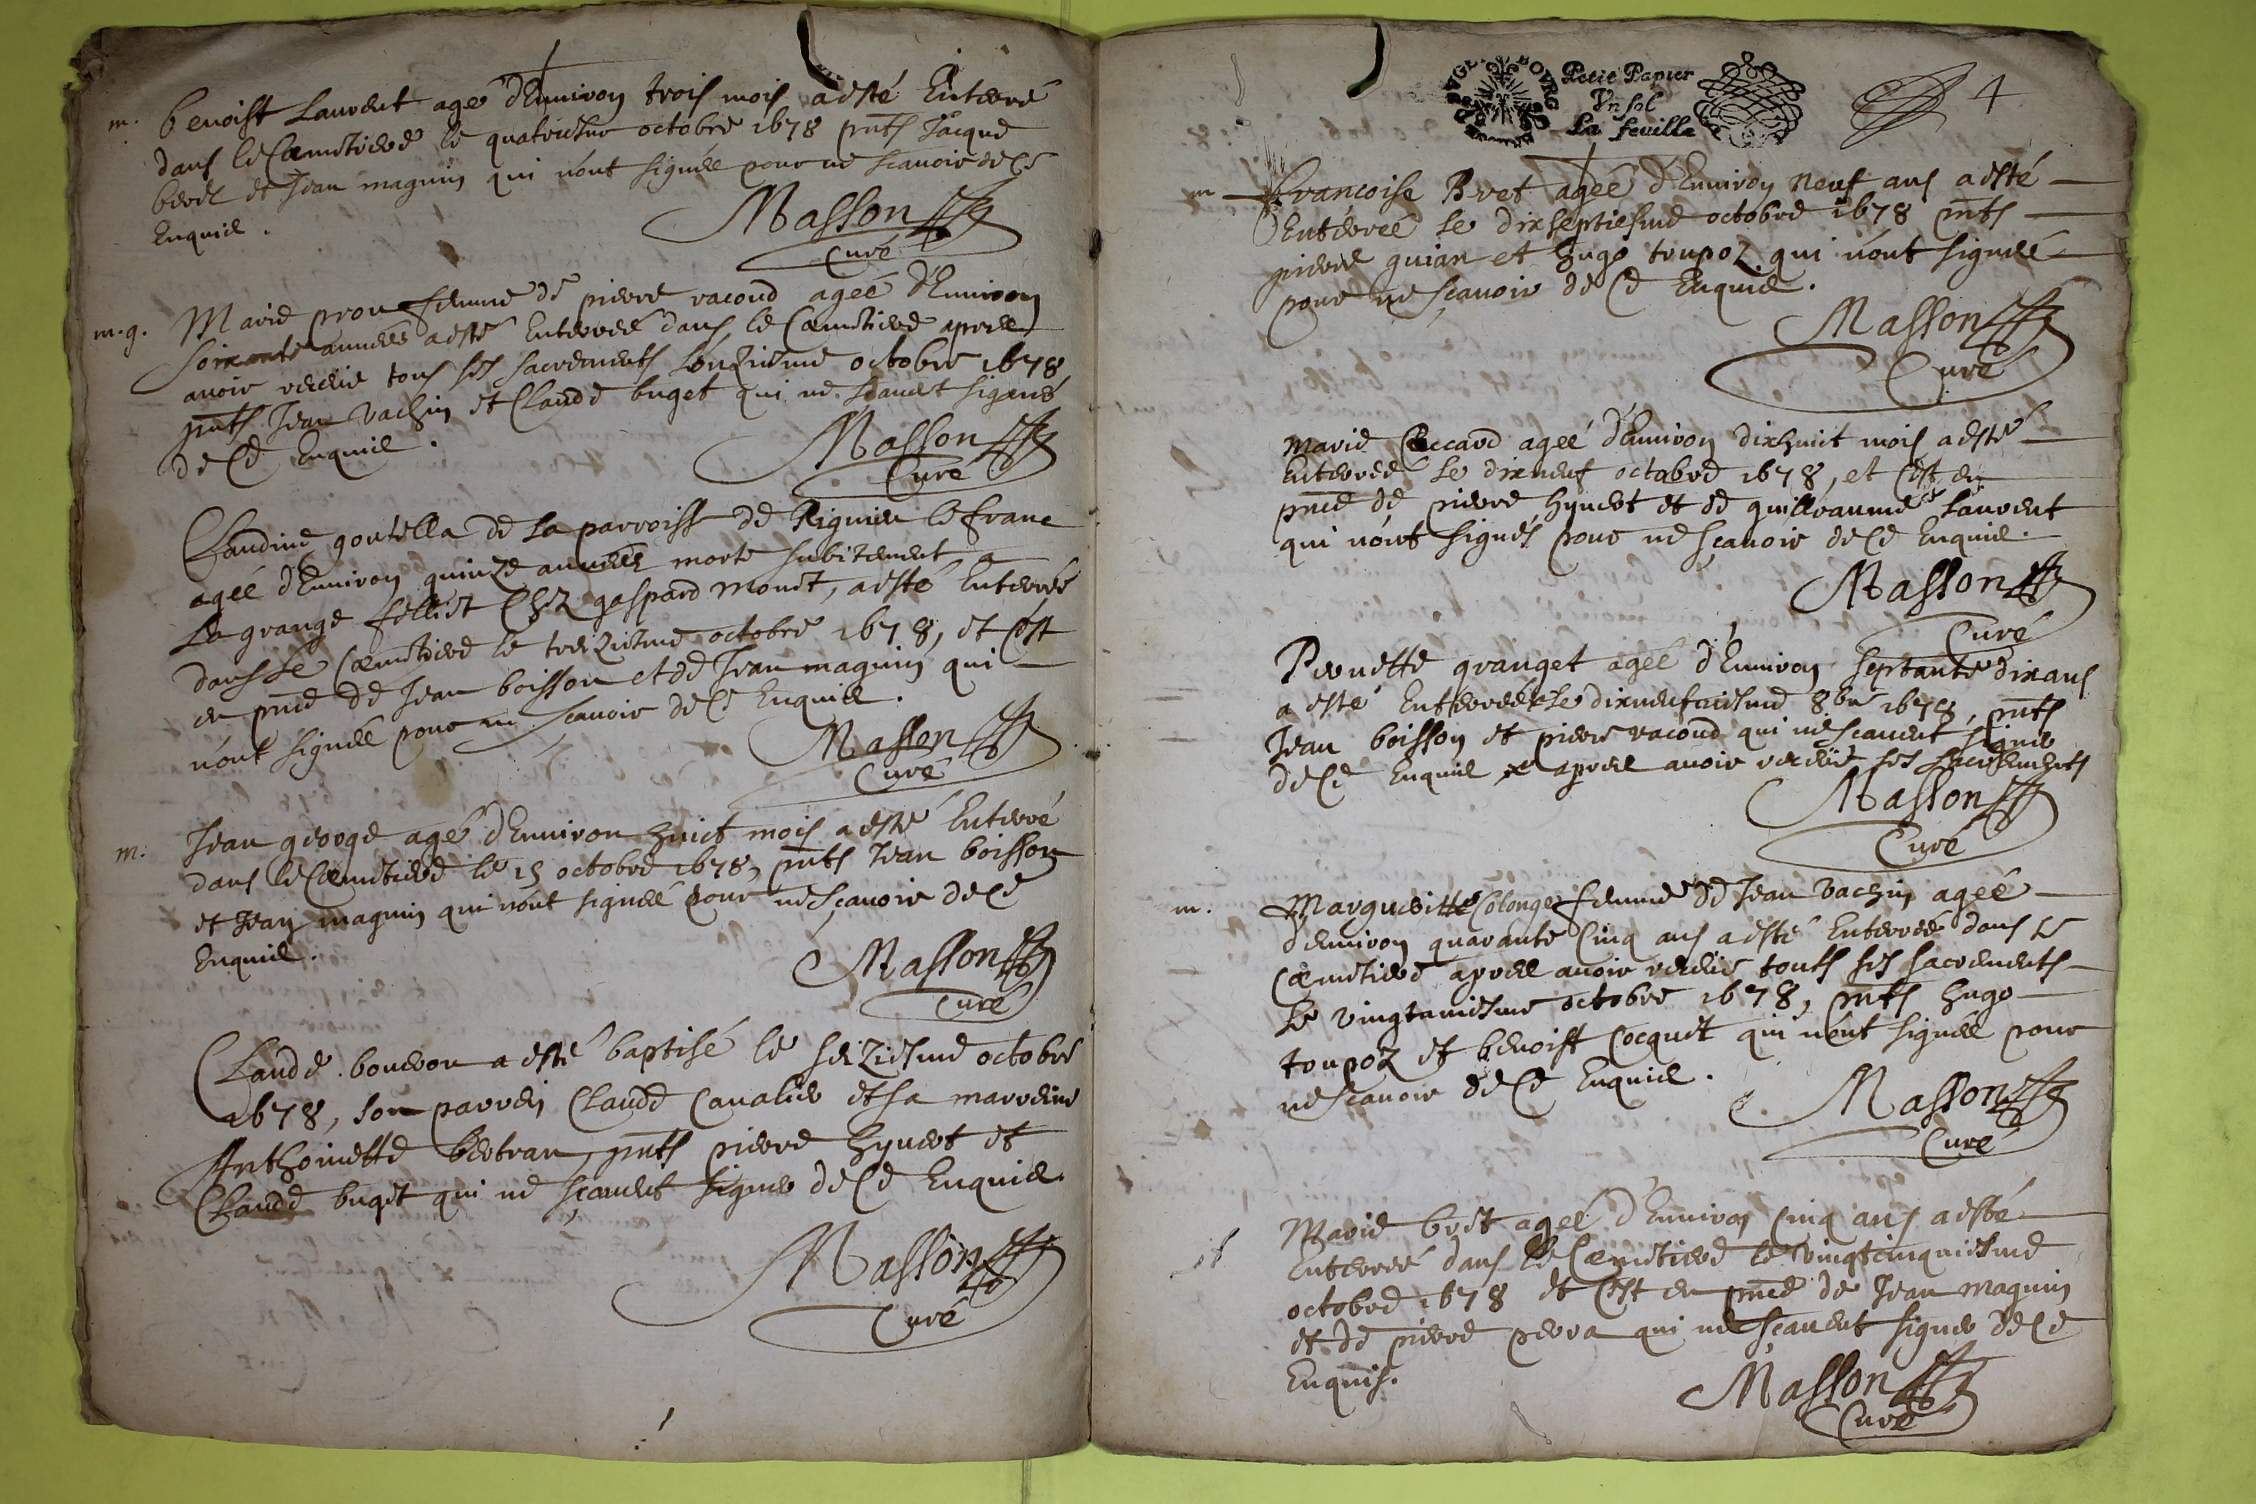 m. benoist Laurent agé d'Enuiron trois mois a esté Enterré
dans le Cæmetiere le quatriesme octobre 1678 pnts Jacque
et Jean magnin qui n'ont signéé pour ne scauoir de ce
Enquiel.
Masson
Curé
m.g. Marie prou femme de pierre racond ageé d'Enuiron
soixante anneés a esté Enterreé dans le Cæmetiere aprees
auoir receue tous ses sacrements l'onziesme octobre 1678
pnts Jean vachin et Claude buget qui ne scauent signés
de Ce Enquiel.
Masson
Curé
Claudine goutella de La parroisse de Rignieu le franc
ageé d'Enuiron quinze anneés morte subitement a
La grange felliet Chez gaspard monet, a esté Enterreé
dans Le Cæmetiere le treiziesme octobre 1678, et C'est
en pnce de Jean boisson et de Jean magnin qui
n'ont signéé pour ne scauoir de Ce Enquiel.
Masson
Curé
m. Jean george agé d'Enuiron huict mois a esté Enterré
dans le Cæmetiere le 15 octobre 1678, pnts Jean boisson
et Jean magnin qui n'ont signéé pour ne scauoir de Ce
Enquiel.
Masson
Curé
Claude bouuon a esté baptisé le seiziesme octobre
1678, son parrein Claude Caualier et sa marreine
Anthoinette bertran, pnts pierre hyuert et
Claude buget qui ne scauent signer de Ce Enquiel.
Masson
Curé
BOURG
Petit Papier
Vn sol
La feuille
4
m Francoise Bret ageé d'Enuiron neuf ans a esté
Enterreé le dixseptiesme octobre 1678 pnts
pierre guian et hugo toupoz qui n'ont signéé
pour ne scauoir de Ce Enquiel.
Masson
Curé
Marie Reccard ageé d'Enuiron dixhuict mois a esté
Enterreé le dixneuf octobre 1678, et C'est en
pnce de pierre hyuert et de guilleaume Laurent
qui n'ont signés pour ne scauoir de Ce Enquiel.
Masson
Curé
Pernette granget ageé d'Enuiron septante dix ans
a esté Enterreé Le dixneufuiesme 8bre 1678, pnts
Jean boisson et pierre racond qui ne scauent signer
de Ce Enquiel aprees auoir receue ses sacrements
Masson
Curé
m. Margueritte Colonge femme de Jean vachin ageé
d'Enuiron quarante Cinq ans a esté Enterreé dans le
Cæmetiere aprees auoir receue touts ses sacrements
Le vingtaniesme octobre 1678, pnts hugo
toupoz et benoist Cocquet qui n'ont signéé pour
ne scauoir de Ce Enquiel.
Masson
Curé
Marie bret ageé d'Enuiron Cinq ans a esté
Enterreé dans le Cæmetiere le vingtcinquiesme
octobre 1678 et C'est en pnce de Jean magnin
et de pierre perra qui ne scauent signer de Ce
Enquis.
Masson
Curé